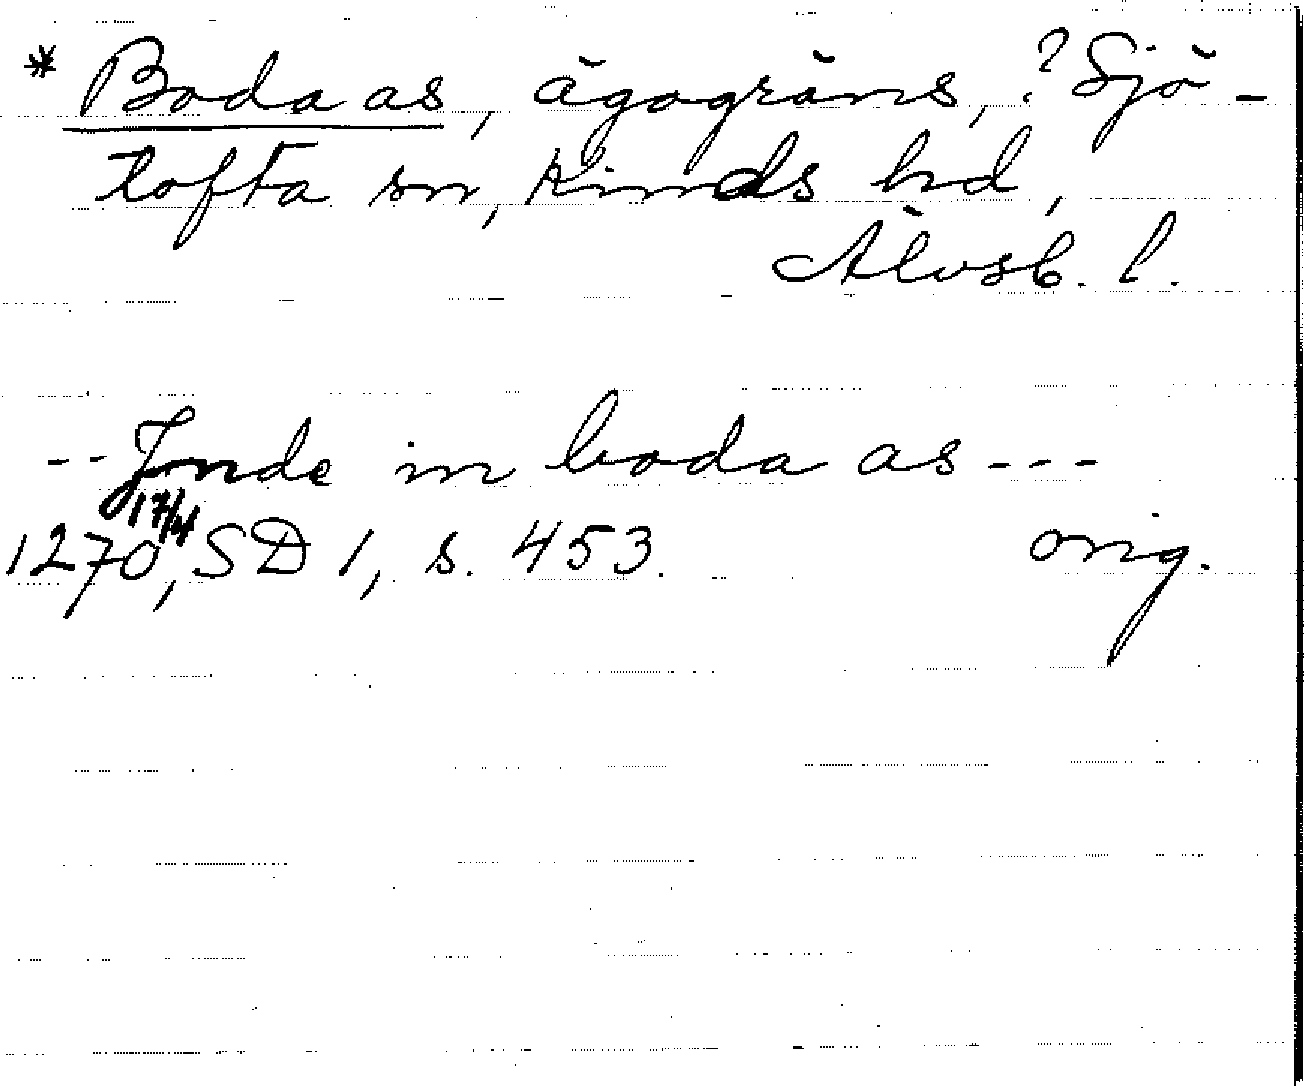 * Boda as, ägogräns, ? Sjö-
tofta sn, Kinds hd,
Älvsb. l.
-- Jnde in boda as ---
17/4
1270, SD 1, s. 453. orig.